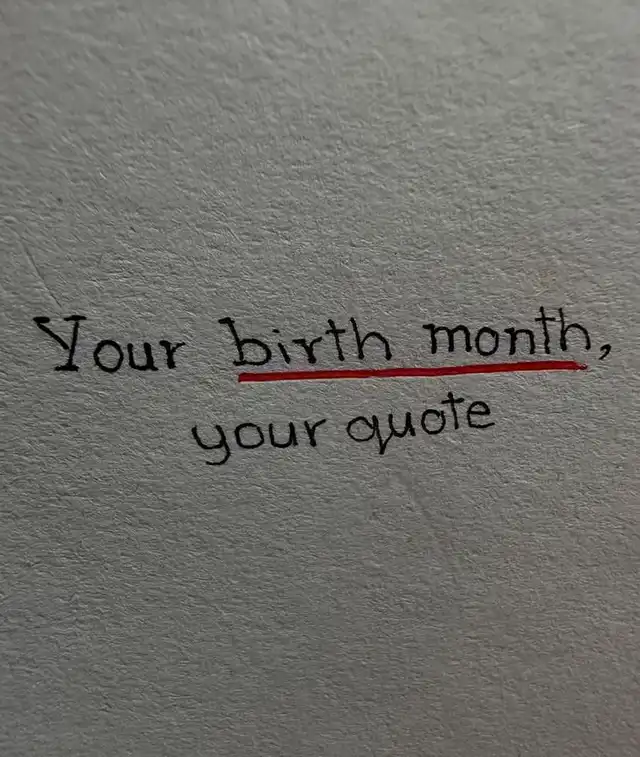 Your birth month,
your quote